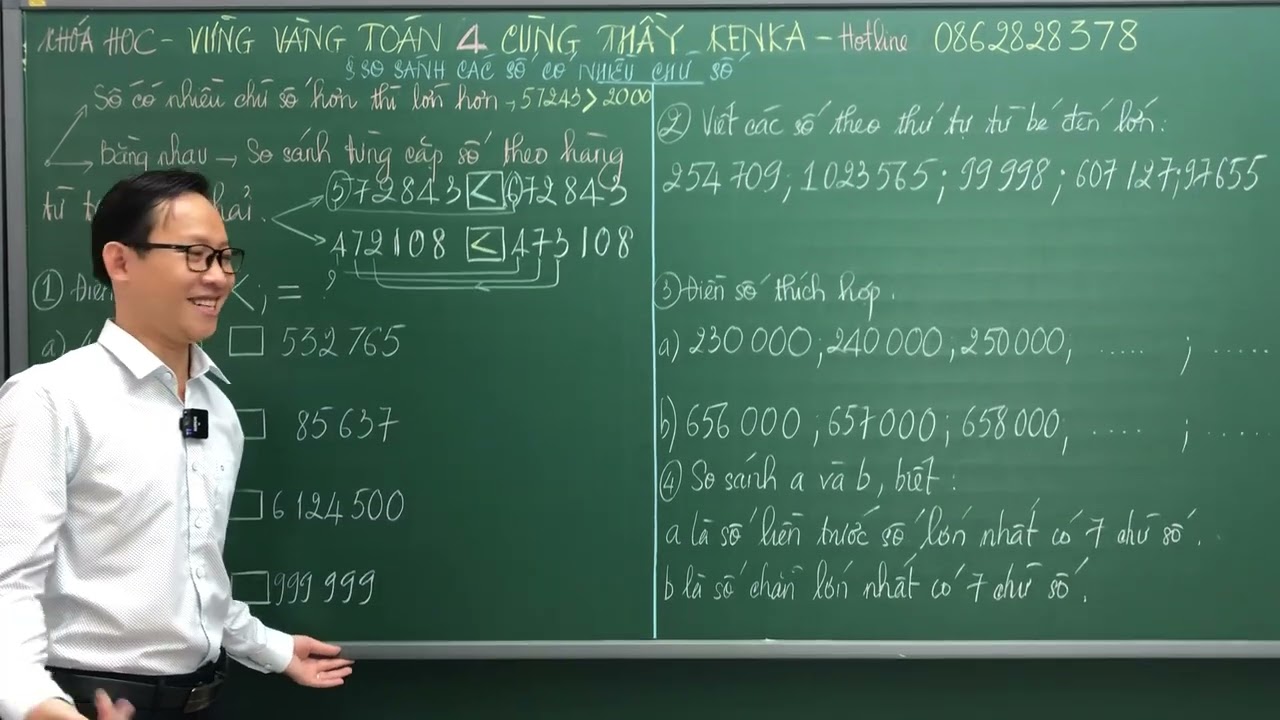 KHÓA HỌC - VỮNG VÀNG TOÁN 4 CÙNG THẦY KENKA - Hotline 0862828378
§ SO SÁNH CÁC SỐ CÓ NHIỀU CHỮ SỐ
Số có nhiều chữ số hơn thì lớn hơn → 57243 > 2000
Bằng nhau → So sánh từng cặp số theo hàng
từ phải.
572843 < 672843
472108 < 473108
① Điền < ; = ?
a) □ 532 765
□ 85 637
□ 6 124 500
□ 999 999
② Viết các số theo thứ tự từ bé đến lớn:
254 709 ; 1 023 565 ; 99 998 ; 607 127 ; 97 655
③ Điền số thích hợp.
a) 230 000 ; 240 000 ; 250 000, ..... ; .....
b) 656 000 ; 657 000 ; 658 000, ..... ; .....
④ So sánh a và b, biết :
a là số liền trước số lớn nhất có 7 chữ số.
b là số chẵn lớn nhất có 7 chữ số.